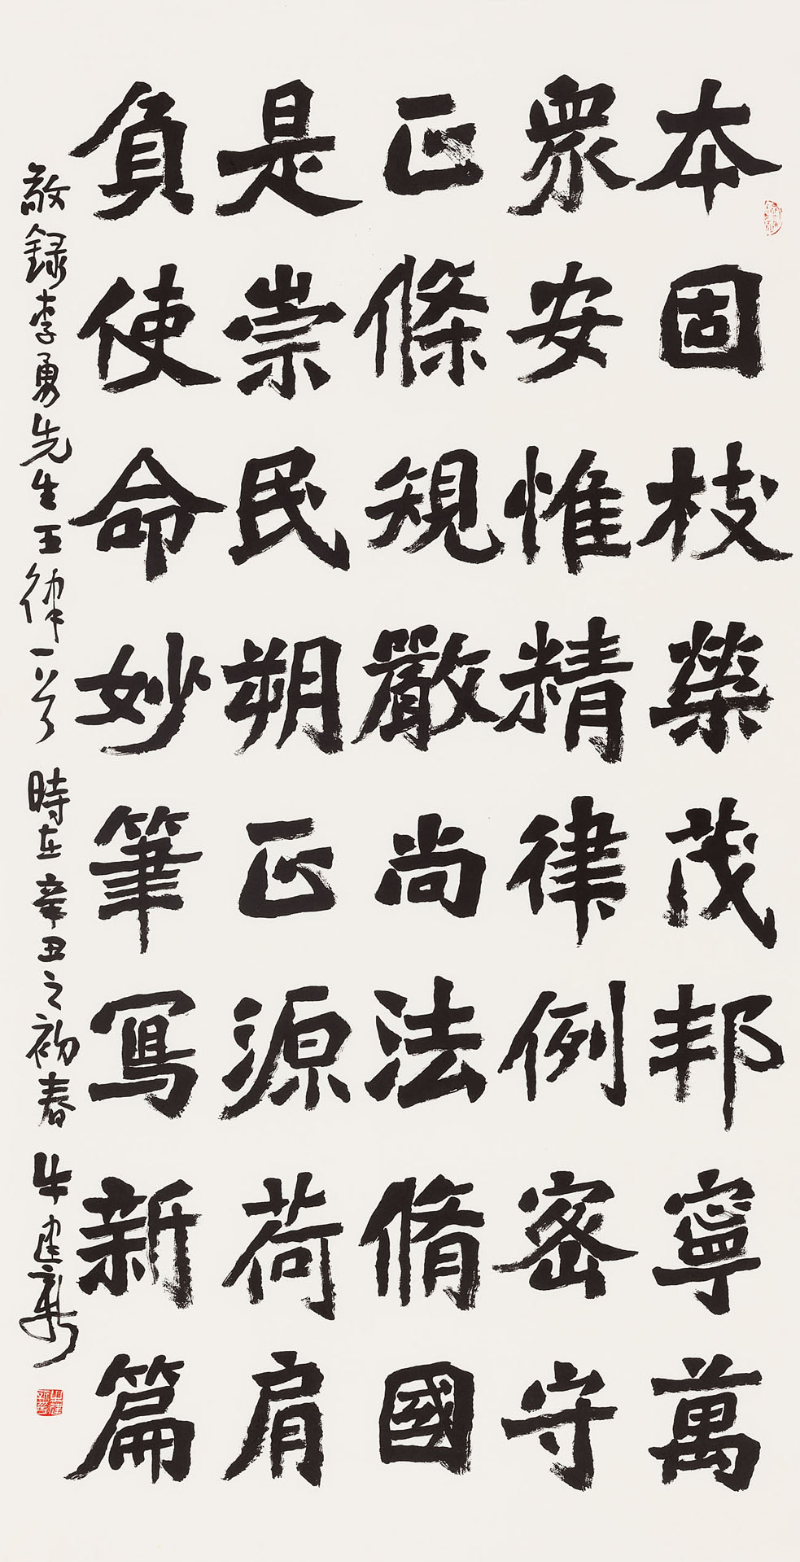 本固枝榮茂邦寧萬
衆安惟精律例密守
正條規嚴尚法脩國
是崇民朔正源荷肩
負使命妙筆寫新篇
敬録李勇先生五律一首 時在辛丑之初春 牛建新